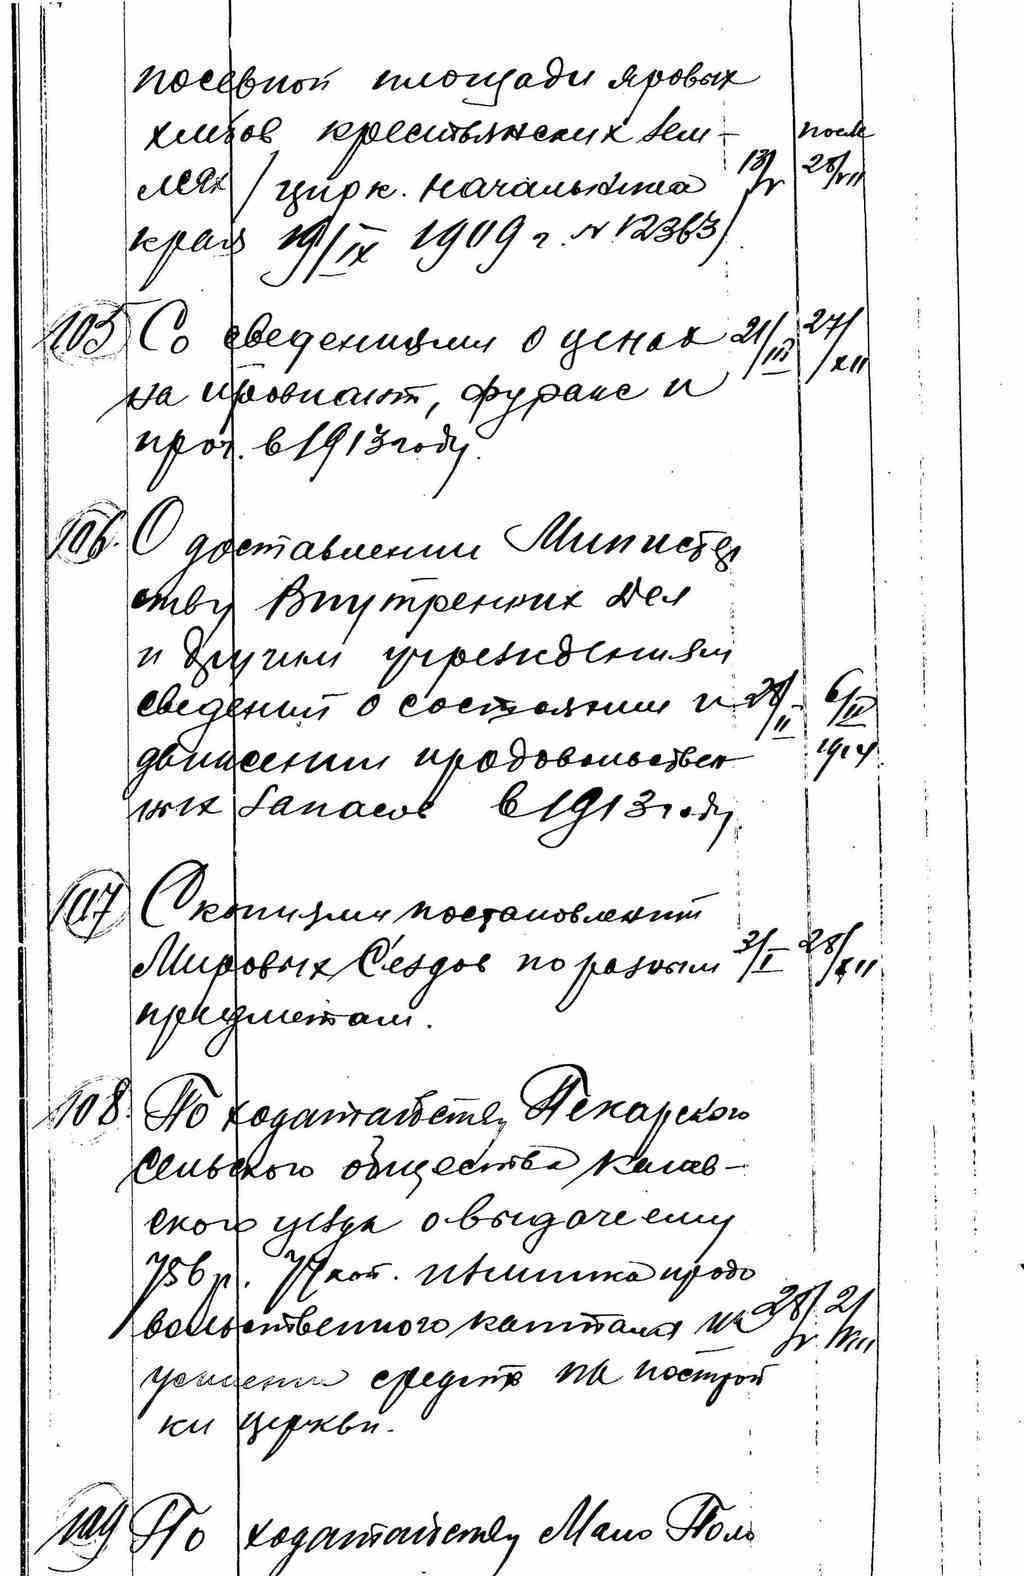 посевной площади яровых
хлебов крестьянских зем-
лях / цирк. начальника
края 19/IX 1909 г. № 12363/
13/V
после 28/VII
105 Со сведениями о ценах
на провиант, фураж и
проч. в 1913 году.
21/III 27/XII
106. О доставлении Министер
ству Внутренних Дел
и другим учреждениям
сведений о состоянии и
движении продовольствен
ных запасов в 1913 году.
28/II 6/II 1914
107 С копиями постановлений
Мировых С'ездов по разным
предметам.
3/I 28/XII
108. По ходатайству Пекарского
сельского общества
ского уезда о выдаче ему
756 р. 77 коп. излишка продо
вольственного капитала на
усиление средств на построй
ки церкви.
28/V 21/VIII
109 По ходатайству Мало Поло